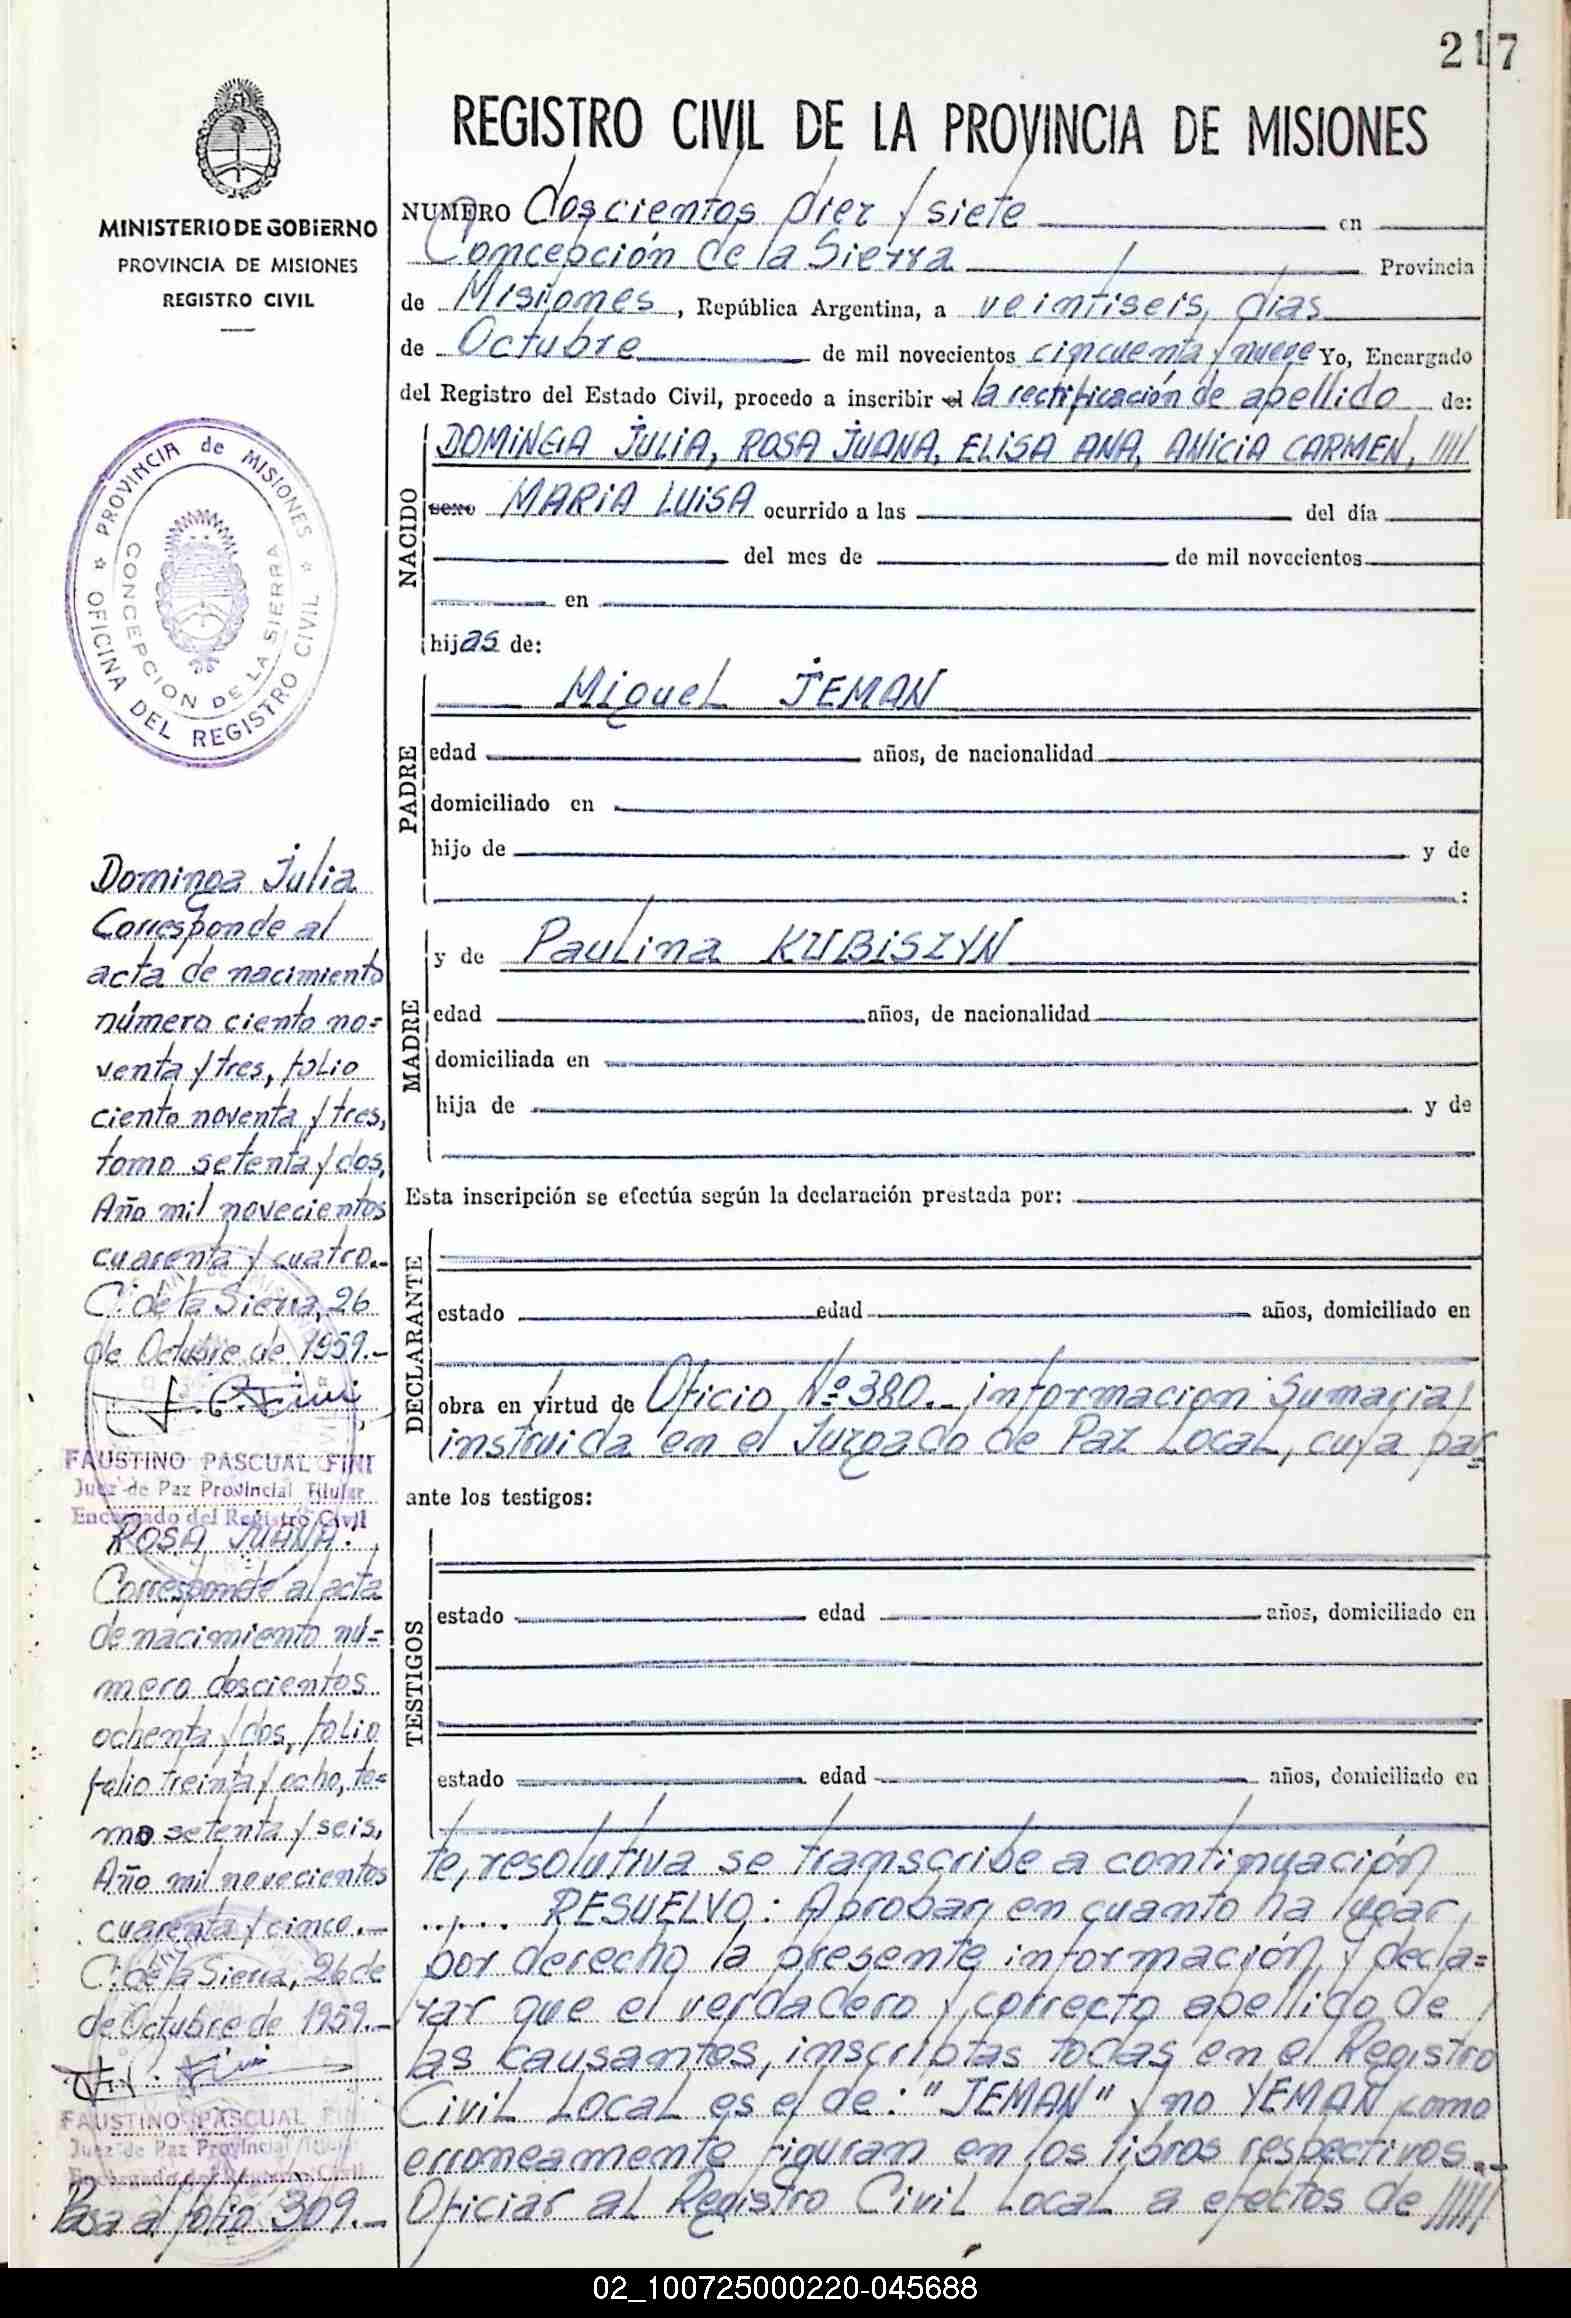 217
REGISTRO CIVIL DE LA PROVINCIA DE MISIONES
MINISTERIO DE GOBIERNO
PROVINCIA DE MISIONES
REGISTRO CIVIL
NUMERO Doscientos diez y siete en
Concepción de la Sierra Provincia
de Misiones, República Argentina, a veintiseis dias
de Octubre de mil novecientos cincuenta y nueve Yo, Encargado
del Registro del Estado Civil, procedo a inscribir el la rectificación de apellido de:
NACIDO
DOMINGA JULIA, ROSA JUANA, ELISA ANA, ANICIA CARMEN, /////
sexo MARIA LUISA ocurrido a las del día
del mes de de mil novecientos
en
hijas de:
PADRE
Miguel JEMAN
edad años, de nacionalidad
domiciliado en
hijo de y de
:
MADRE
y de Paulina KUBISZYN
edad años, de nacionalidad
domiciliada en
hija de y de
Esta inscripción se efectúa según la declaración prestada por:
DECLARANTE
estado edad años, domiciliado en
obra en virtud de Oficio Nº 380.- información Sumaria
instruida en el Juzgado de Paz Local, cuya par
ante los testigos:
TESTIGOS
estado edad años, domiciliado en
estado edad años, domiciliado en
te, resolutiva se transcribe a continuación
..... RESUELVO: Aprobar en cuanto ha lugar
por derecho la presente información y decla=
rar que el verdadero y correcto apellido de
las causantes, inscriptas todas en el Registro
Civil Local es el de: "JEMAN" y no YEMAN como
erroneamente figuran en los libros respectivos.-
Oficiar al Registro Civil Local a efectos de /////
PROVINCIA de MISIONES
OFICINA DEL REGISTRO CIVIL
CONCEPCION DE LA SIERRA
Dominga Julia
Corresponde al
acta de nacimiento
número ciento no=
venta y tres, folio
ciento noventa y tres,
tomo setenta y dos,
Año mil novecientos
cuarenta y cuatro.-
C. de la Sierra, 26
de Octubre de 1959.-
FAUSTINO PASCUAL FINI
Juez de Paz Provincial Titular
Encargado del Registro Civil
ROSA JUANA:
Corresponde al acta
de nacimiento nú=
mero doscientos
ochenta y dos, folio
folio treinta y ocho, to=
mo setenta y seis,
Año mil novecientos
cuarenta y cinco.-
C. de la Sierra, 26 de
de Octubre de 1959.-
FAUSTINO PASCUAL FINI
Juez de Paz Provincial Titular
Encargado del Registro Civil
Pasa al folio 309.-
02_100725000220-045688